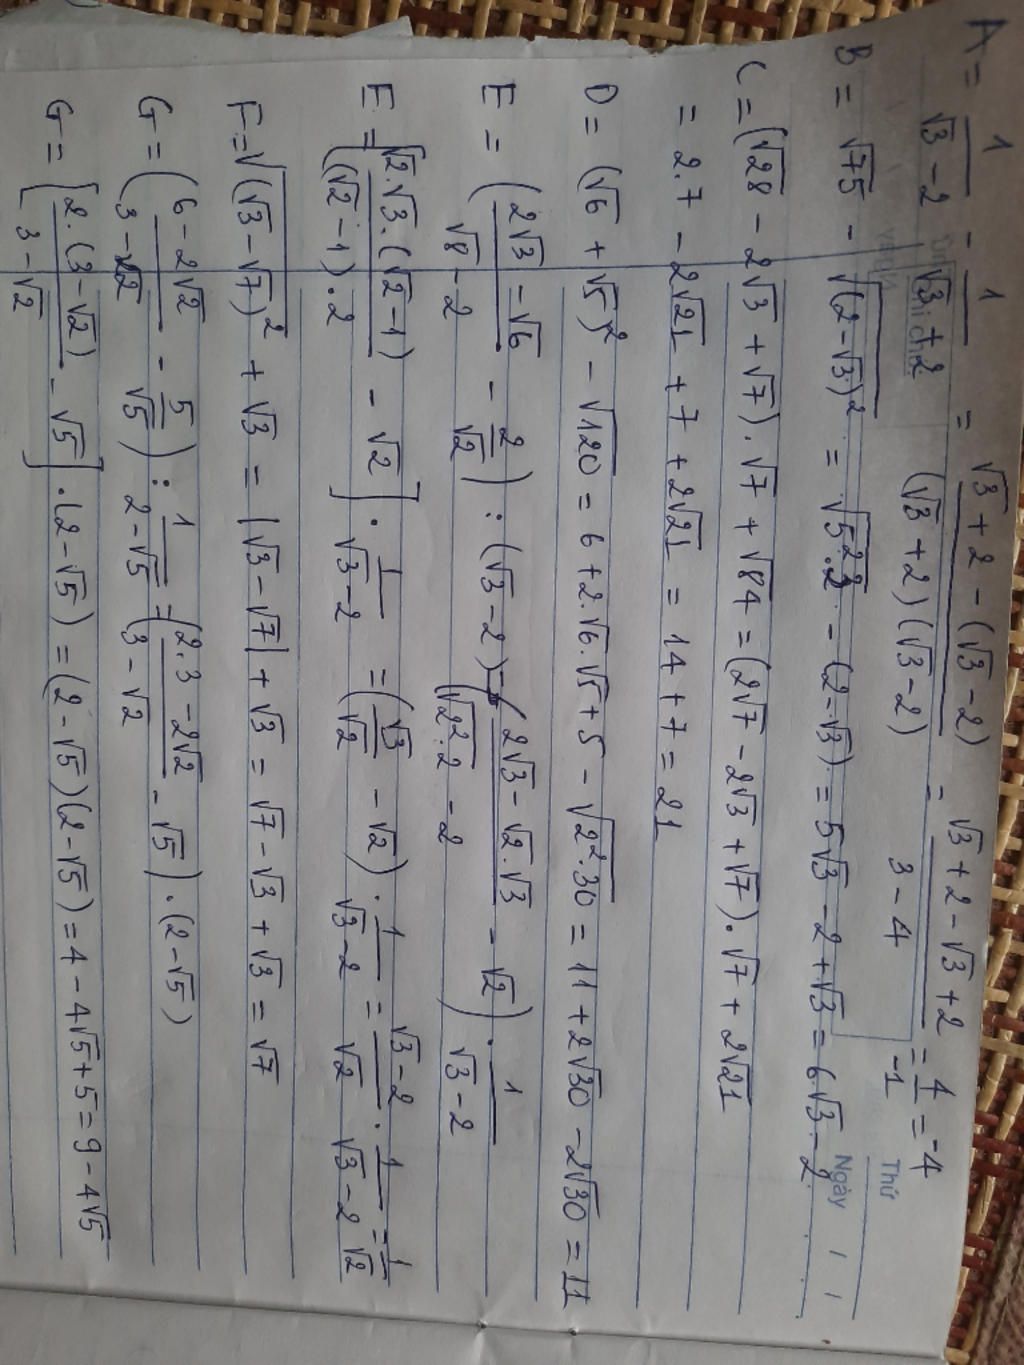 A = 1/(√3 - 2) - 1/(√3 + 2) = (√3 + 2 - (√3 - 2))/((√3 + 2)(√3 - 2)) = (√3 + 2 - √3 + 2)/(3 - 4) = 4/-1 = -4
Thứ
Ngày / /
B = √75 - √(2-√3)² = √5².2² - (2-√3) = 5√3 - 2 + √3 = 6√3 - 2
C = (√28 - 2√3 + √7).√7 + √84 = (2√7 - 2√3 + √7).√7 + 2√21
= 2.7 - 2√21 + 7 + 2√21 = 14 + 7 = 21
D = (√6 + √5)² - √120 = 6 + 2.√6.√5 + 5 - √2².30 = 11 + 2√30 - 2√30 = 11
E = ((2√3 - √6)/(√8 - 2) - 2/√2) : (√3 - 2) = ((2√3 - √2.√3)/(√2².2 - 2) - √2) . 1/(√3 - 2)
E = [√2.√3.(√2 - 1)/((√2 - 1).2) - √2] . 1/(√3 - 2) = (√3/√2 - √2) . 1/(√3 - 2) = (√3 - 2)/√2 . 1/(√3 - 2) = 1/√2
F = √(√3 - √7)² + √3 = |√3 - √7| + √3 = √7 - √3 + √3 = √7
G = ((6 - 2√2)/(3 - √2) - 5/√5) : 1/(2 - √5) = ((2.3 - 2√2)/(3 - √2) - √5) . (2 - √5)
G = [2.(3 - √2)/(3 - √2) - √5] . (2 - √5) = (2 - √5)(2 - √5) = 4 - 4√5 + 5 = 9 - 4√5